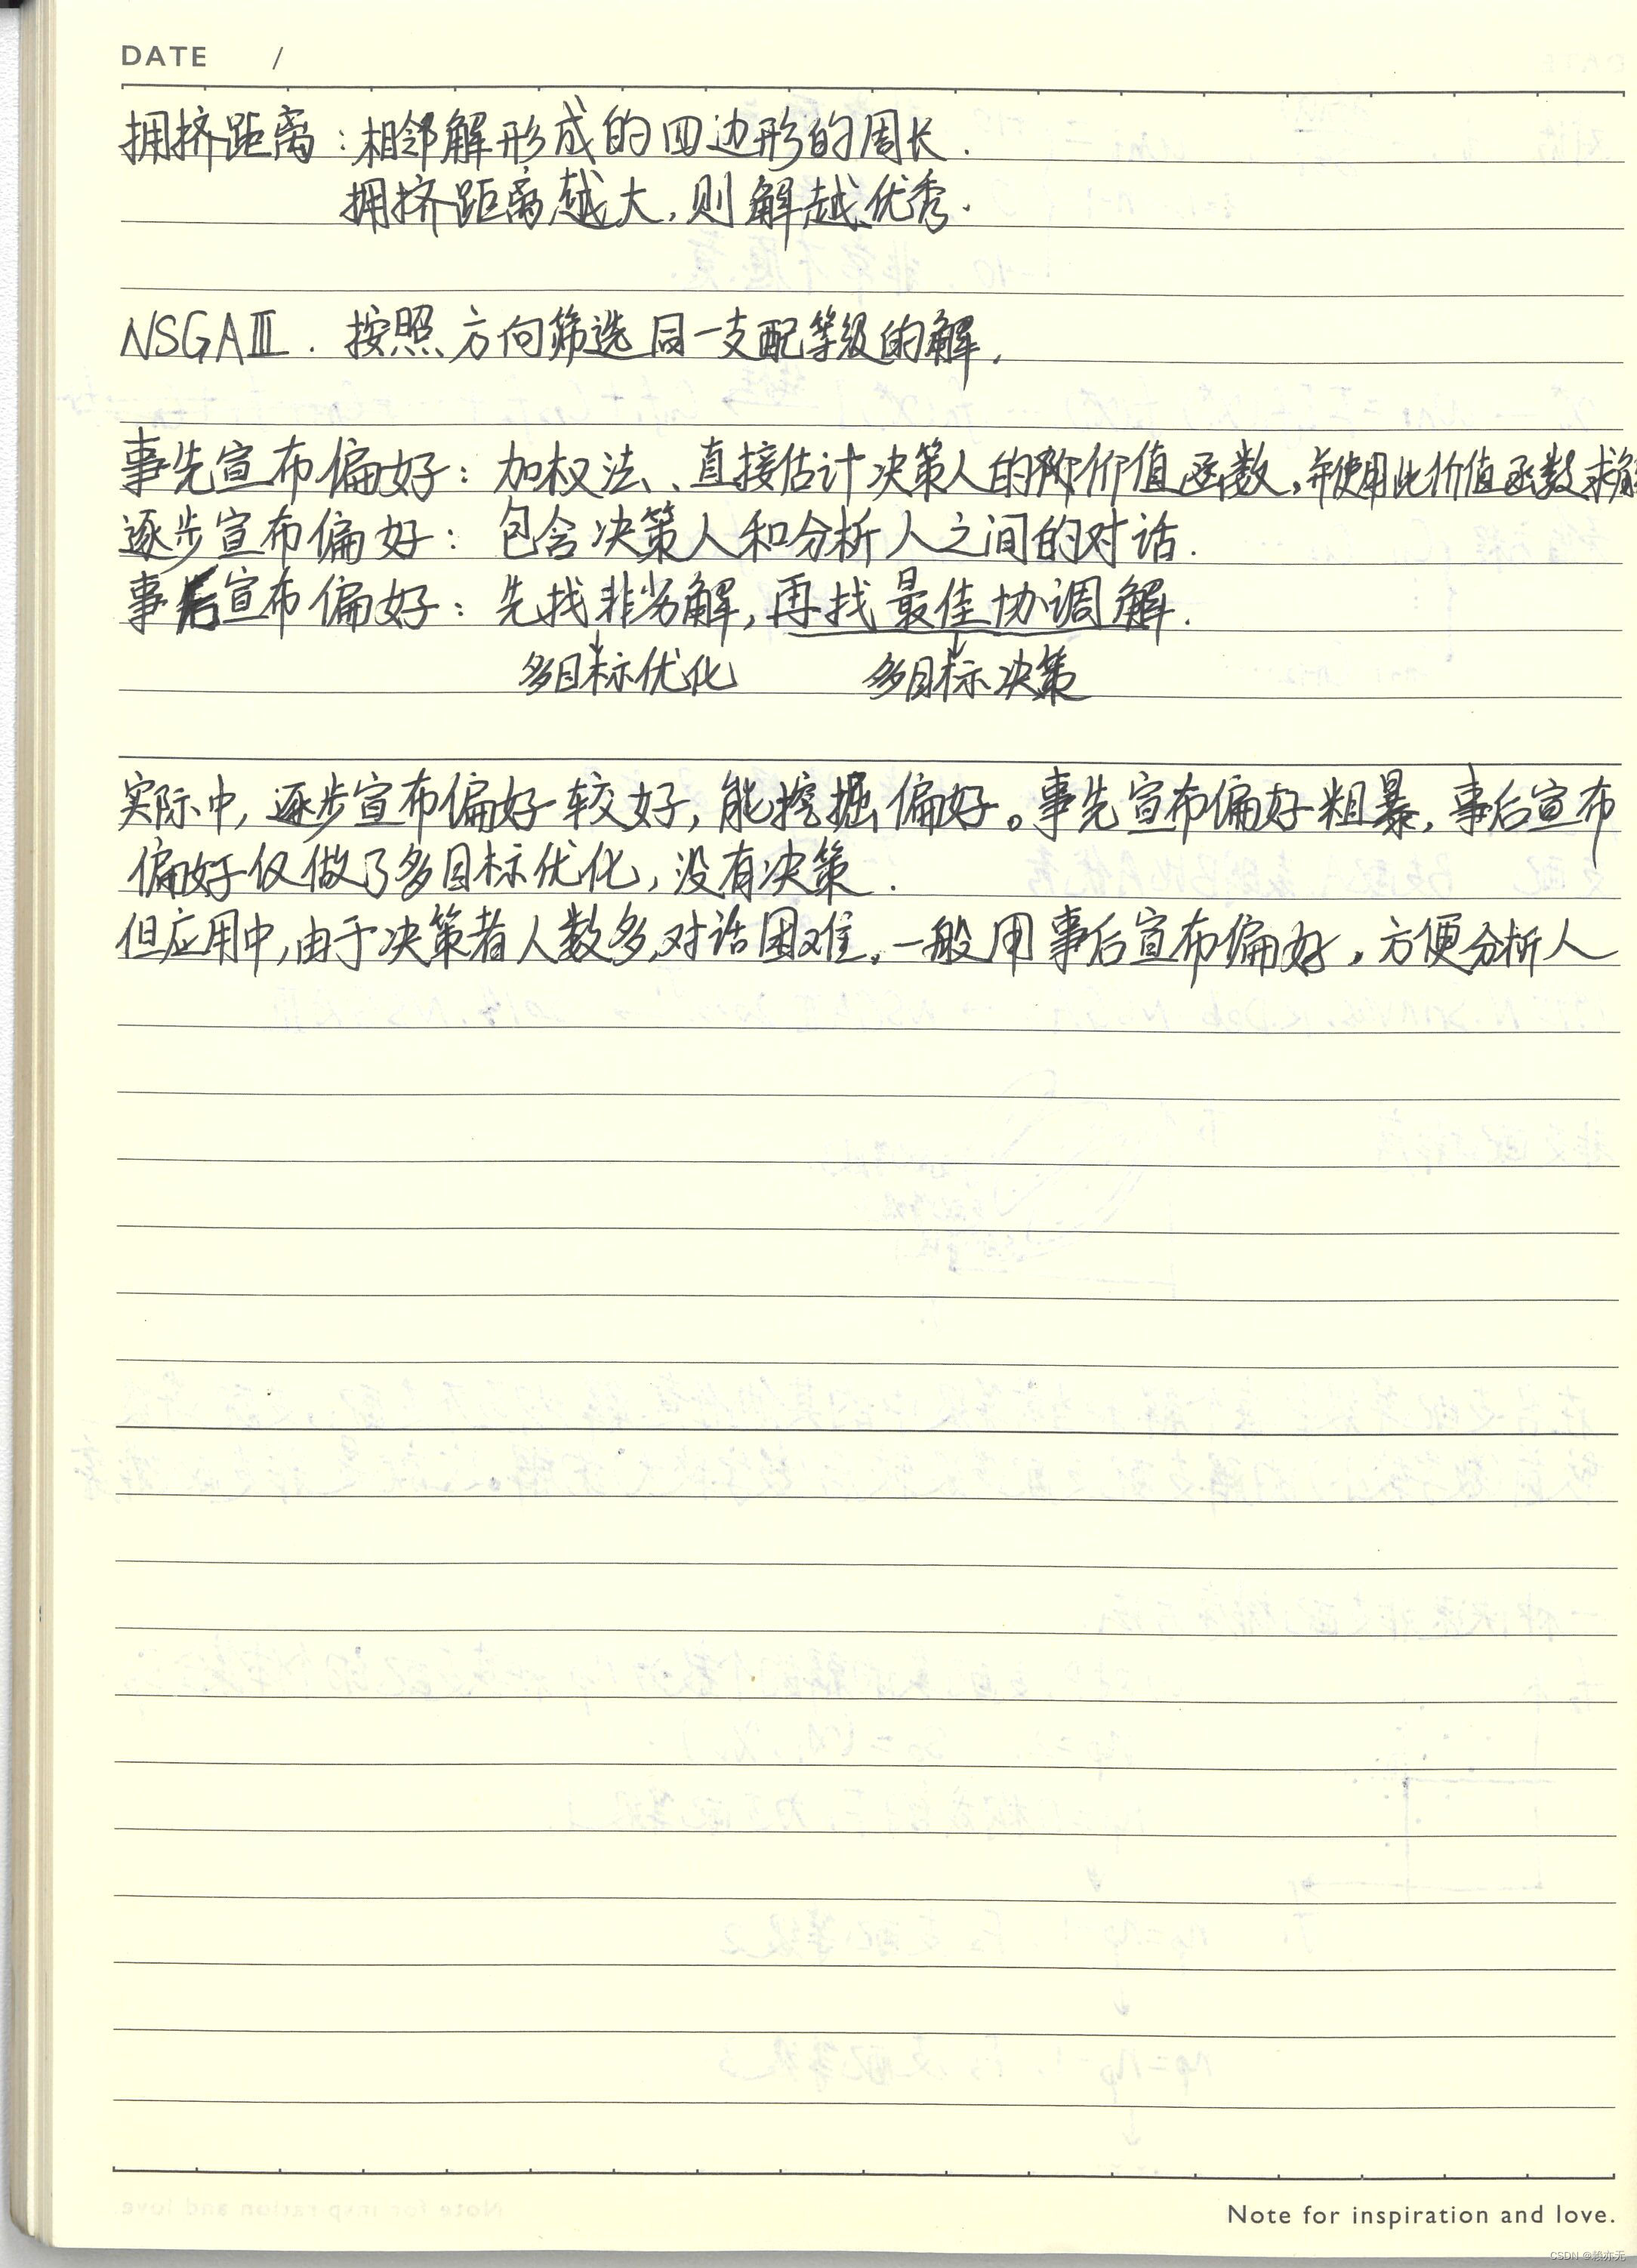 DATE /
拥挤距离：相邻解形成的四边形的周长.
拥挤距离越大，则解越优秀.
NSGAⅢ. 按照方向筛选同一支配等级的解.
事先宣布偏好：加权法、直接估计决策人的价值函数，并使用此价值函数求解
逐步宣布偏好：包含决策人和分析人之间的对话.
事后宣布偏好：先找非劣解，再找最佳协调解.
多目标优化 多目标决策
实际中，逐步宣布偏好较好，能挖掘偏好。事先宣布偏好粗暴，事后宣布
偏好仅做了多目标优化，没有决策.
但应用中，由于决策者人数多，对话困难，一般用事后宣布偏好，方便分析人
Note for inspiration and love.
CSDN @赖亦无